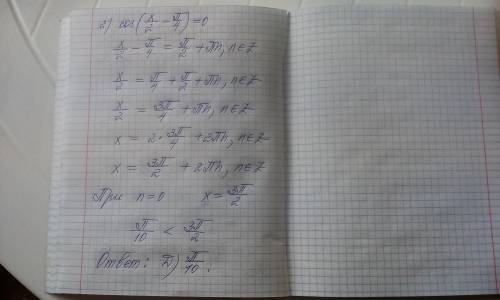 2) cos(x/2 - π/4) = 0
x/2 - π/4 = π/2 + πn, n∈Z
x/2 = π/4 + π/2 + πn, n∈Z
x/2 = 3π/4 + πn, n∈Z
x = 2·3π/4 + 2πn, n∈Z
x = 3π/2 + 2πn, n∈Z
При n=0 x = 3π/2
π/10 < 3π/2
Ответ: Д) π/10.